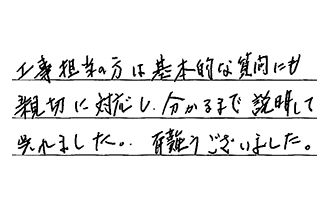 工事担当の方は基本的な質問にも
親切に対応し、分かるまで説明して
呉れました。有難うございました。